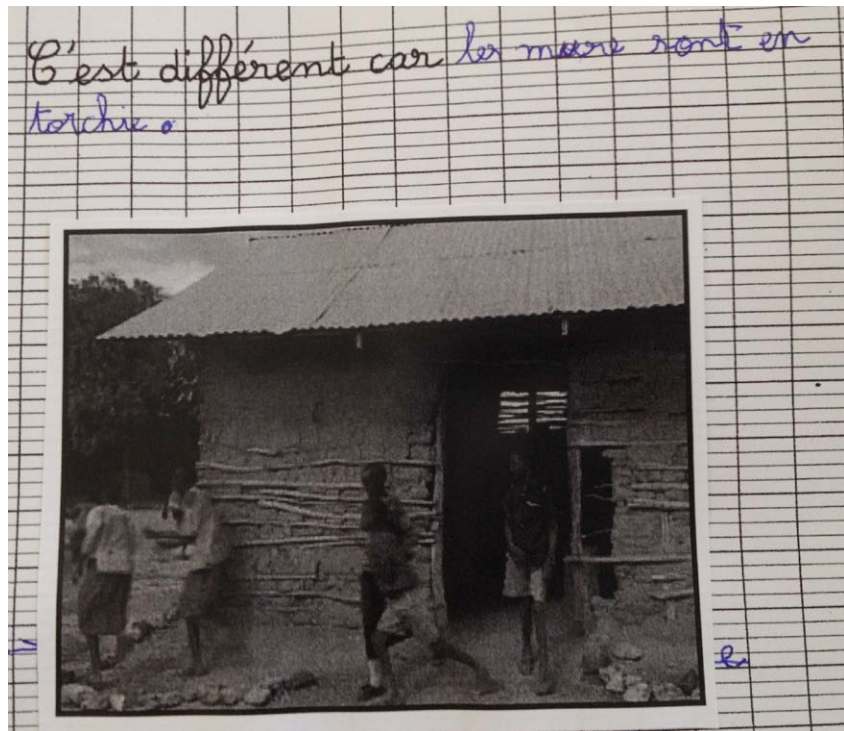 C'est différent car les murs sont en
torchis.
e